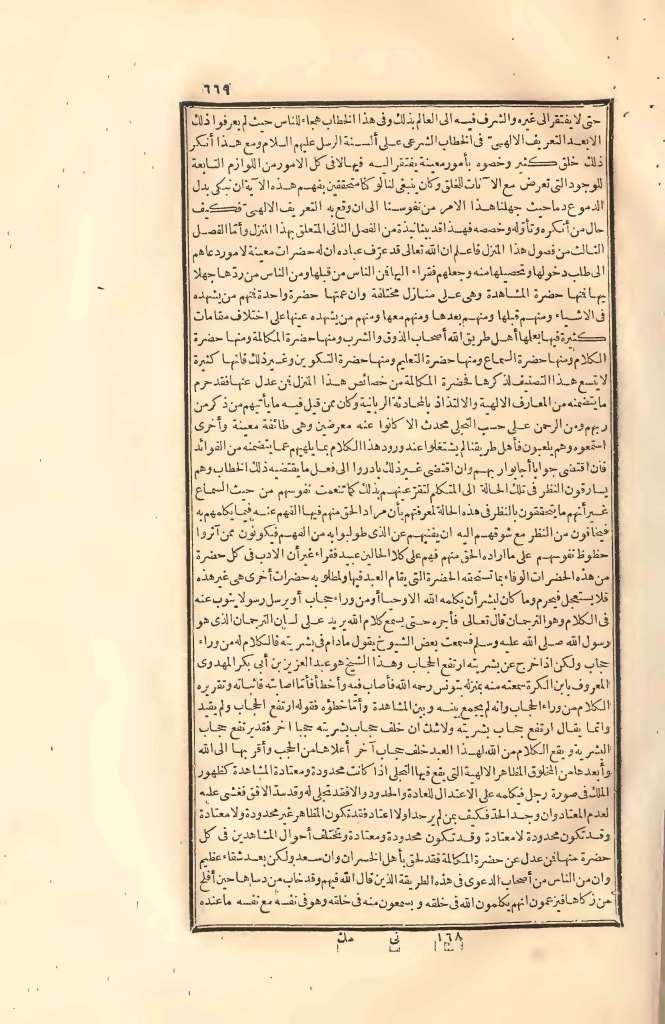 ٦٦٩
حتى لا يفتقر الى غيره والشرف فيه الى العالم بذلك وفى هذا الخطاب هجاء للناس حيث لم يعرفوا ذلك
الا بعد التعريف الالهى فى الخطاب الشرعى على ألسنة الرسل عليهم السلام ومع هذا أنكر
ذلك خلق كثير وخصوه بأمور معينة يفتقر اليه فيها لا فى كل الامور من اللوازم التابعة
للوجود التى تعرض مع الآنات للخلق وكان ينبغى لنا لو كنا متحققين بفهم هذه الآية ان نبكى بدل
الدموع دما حيث جهلنا هذا الامر من نفوسنا الى ان وقع به التعريف الالهى فكيف
حال من أنكره وتأوله وخصصه فهذا قد بينا نبذة من الفصل الثانى المتعلق بهذا المنزل وأما الفصل
الثالث من فصول هذا المنزل فاعلم ان الله تعالى قد عرف عباده ان له حضرات معينة لامور دعاهم
الى طلب دخولها وتحصيلها منه وجعلهم فقراء اليها فمن الناس من قبلها ومن الناس من ردها جهلا
بها فمنها حضرة المشاهدة وهى على منازل مختلفة وان عمتها حضرة واحدة فمنهم من يشهده
فى الاشياء ومنهم قبلها ومنهم بعدها ومنهم معها ومنهم من يشهده عينها على اختلاف مقامات
كثيرة فيها يعلمها أهل طريق الله أصحاب الذوق والشرب ومنها حضرة المكالمة ومنها حضرة
الكلام ومنها حضرة السماع ومنها حضرة التعليم ومنها حضرة التكوين وغير ذلك فانها كثيرة
لا يتسع هذا التصنيف لذكرها فحضرة المكالمة من خصائص هذا المنزل فمن عدل عنها فقد حرم
ما يتضمنه من المعارف الالهية والالتذاذ بالمحادثة الربانية وكان ممن قيل فيه ما يأتيهم من ذكر من
ربهم ومن الرحمن على حسب التجلى محدث الا كانوا عنه معرضين وهى طائفة معينة وأخرى
استمعوه وهم يلعبون فأهل طريقنا لم يشتغلوا عند ورود هذا الكلام بما يلهيهم عما يتضمنه من الفوائد
فان اقتضى جوابا أجابوا ربهم وان اقتضى غير ذلك بادروا الى فعل ما يقتضيه ذلك الخطاب وهم
يسارقون النظر فى تلك الحالة الى المتكلم لتقر عينهم بذلك كما تنعمت نفوسهم من حيث السماع
غير أنهم ما يتحققون بالنظر فى هذه الحالة لمعرفتهم بأن مراد الحق منهم فيها الفهم عنه فيما يكلمهم به
فيخافون من النظر مع شوقهم اليه ان يفنيهم عن الذى طولبوا به من الفهم فيكونون ممن آثروا
حظوظ نفوسهم على ما اراده الحق منهم فهم على كلا الحالين عبيد فقراء غير أن الادب فى كل حضرة
من هذه الحضرات الوفاء بما تستحقه الحضرة التى يقام العبد فيها والمطلوب به حضرات أخرى هى غير هذه
فلا يستعجل فيحرم وما كان لبشر أن يكلمه الله الا وحيا أو من وراء حجاب أو يرسل رسولا ينوب عنه
فى الكلام وهو الترجمان قال تعالى فأجره حتى يسمع كلام الله يريد على لسان الترجمان الذى هو
رسول الله صلى الله عليه وسلم فسمعت بعض الشيوخ يقول مادام فى بشريته فالكلام له من وراء
حجاب ولكن اذا خرج عن بشريته ارتفع الحجاب وهذا الشيخ هو عبد العزيز بن أبى بكر المهدوى
المعروف بابن الكرة سمعته منه بمنزله بتونس رحمه الله فأصاب فيه وأخطأ فأما اصابته فاثباته وتقريره
الكلام من وراء الحجاب وانه لم يجمع بينه وبين المشاهدة وأما خطؤه فقوله ارتفع الحجاب ولم يقيد
وانما يقال ارتفع حجاب بشريته ولاشك ان خلف حجاب بشريته حجبا اخر فقد يرتفع حجاب
البشرية ويقع الكلام من الله لهذا العبد خلف حجاب آخر أعلاها من الحجب وأقربها الى الله
وأبعدها من المخلوق المظاهر الالهية التى يقع فيها التجلى اذا كانت محدودة ومعتادة المشاهدة كظهور
الملك فى صورة رجل فيكلمه على الاعتدال للعادة والحدود والا فقد تجلى له وقد سد الافق فغشى عليه
لعدم المعتاد وان وجد الحد فكيف بمن لم ير حدا ولا اعتاد فقد تكون المظاهر غير محدودة ولا معتادة
وقد تكون محدودة لا معتادة وقد تكون محدودة ومعتادة وتختلف أحوال المشاهدين فى كل
حضرة منها فمن عدل عن حضرة المكالمة فقد لحق بأهل الخسران وان سعد ولكن بعد شقاء عظيم
وان من الناس من أصحاب الدعوى فى هذه الطريقة الذين قال الله فيهم وقد خاب من دساها حين أفلح
من زكاها فيزعمون انهم يكلمون الله فى خلقه ويسمعون منه فى خلقه وهو فى نفسه مع نفسه ما عنده
١٦٨ نى مك